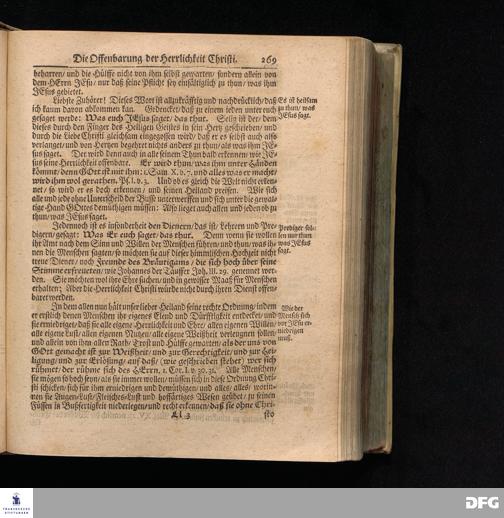 Die Offenbarung der Herrlichkeit Christi. 269
beharren/ und die Hülffe nicht von ihm selbst gewarten/ sondern allein von
dem HErrn JEsu/ nur daß seine Pflicht sey einfältiglich zu thun/ was ihm
JEsus gebietet.
Liebste Zuhörer! Dieses Wort ist allzukräfftig und nachdrücklich/ daß
ich kaum davon abkommen kan. Gedencket/ daß zu einem ieden unter euch
gesaget werde: Was euch JEsus saget/ das thut. Selig ist der/ dem
dieses durch den Finger des Heiligen Geistes in sein Hertz geschrieben/ und
durch die Liebe Christi gleichsam eingegossen wird/ daß er es selbst auch also
verlanget/ und von Hertzen begehret nichts anders zu thun/ als was ihm JE-
sus saget. Der wird denn auch in alle seinem Thun bald erkennen/ wie JE-
sus seine Herrlichkeit offenbare. Er wird thun/ was ihm unter Händen
kömmt/ denn GOtt ist mit ihm: 1. Sam. X. v. 7. und alles was er macht/
wird ihm wol gerathen. Ps. I. v. 3. Und ob es gleich die Welt nicht erken-
net/ so wird er es doch erkennen/ und seinen Heiland preisen. Wie sich
alle und iede ohne Unterscheid der Busse unterwerffen und sich unter die gewal-
tige Hand GOttes demüthigen müssen: Also lieget auch allen und ieden ob zu
thun/ was JEsus saget.
Es ist heilsam
zu thun/ was
JEsus sagt.
Jedennoch ist es insonderheit den Dienern/ das ist/ Lehrern und Pre-
digern/ gesagt: Was Er euch saget/ das thut. Denn wenn sie wollen
ihr Amt nach dem Sinn und Willen der Menschen führen/ und thun/ was ih-
nen die Menschen sagten/ so möchten sie auf dieser himmlischen Hochzeit nicht
treue Diener/ noch Freunde des Bräutigams/ die sich hoch über seine
Stimme erfreueten/ wie Johannes der Täuffer Joh. III. 29. genennet wor-
den. Sie möchten wol ihre Ehre suchen/ und in gewisser Maaß für Menschen
erhalten; Aber die Herrlichkeit Christi würde nicht durch ihren Dienst offen-
baret werden.
Prediger sol-
len nur thun
was JEsus
sagt.
In dem allen nun hält unser lieber Heiland seine rechte Ordnung/ indem
er erstlich denen Menschen ihr eigenes Elend und Dürfftigkeit entdecket/ und
sie erniedriget/ daß sie alle eigene Herrlichkeit und Ehre/ allen eigenen Willen/
alle eigene Lust/ allen eigenen Nutzen/ alle eigene Weißheit verleugnen sollen/
und allein von ihm allen Rath/ Trost und Hülffe gewarten/ als der uns von
GOtt gemacht ist zur Weißheit/ und zur Gerechtigkeit/ und zur Hei-
ligung/ und zur Erlösung/ auf daß/ (wie geschrieben stehet) wer sich
rühmet/ der rühme sich des HErrn, 1. Cor. I. v. 30. 31. Alle Menschen/
sie mögen so hoch seyn/ als sie immer wollen/ müssen sich in diese Ordnung Chri-
sti schicken/ sich für ihm erniedrigen und demüthigen/ und alles/ alles/ worin-
nen sie Augen-Lust/ Fleisches-Lust und hoffärtiges Wesen geübet/ zu seinen
Füssen in Bußfertigkeit niederlegen/ und recht erkennen/ daß sie ohne Chri-
Wie der
Mensch sich
vor JEsu er-
niedrigen
muß.
Ll 3 sto
FRANCKESCHE STIFTUNGEN
DFG